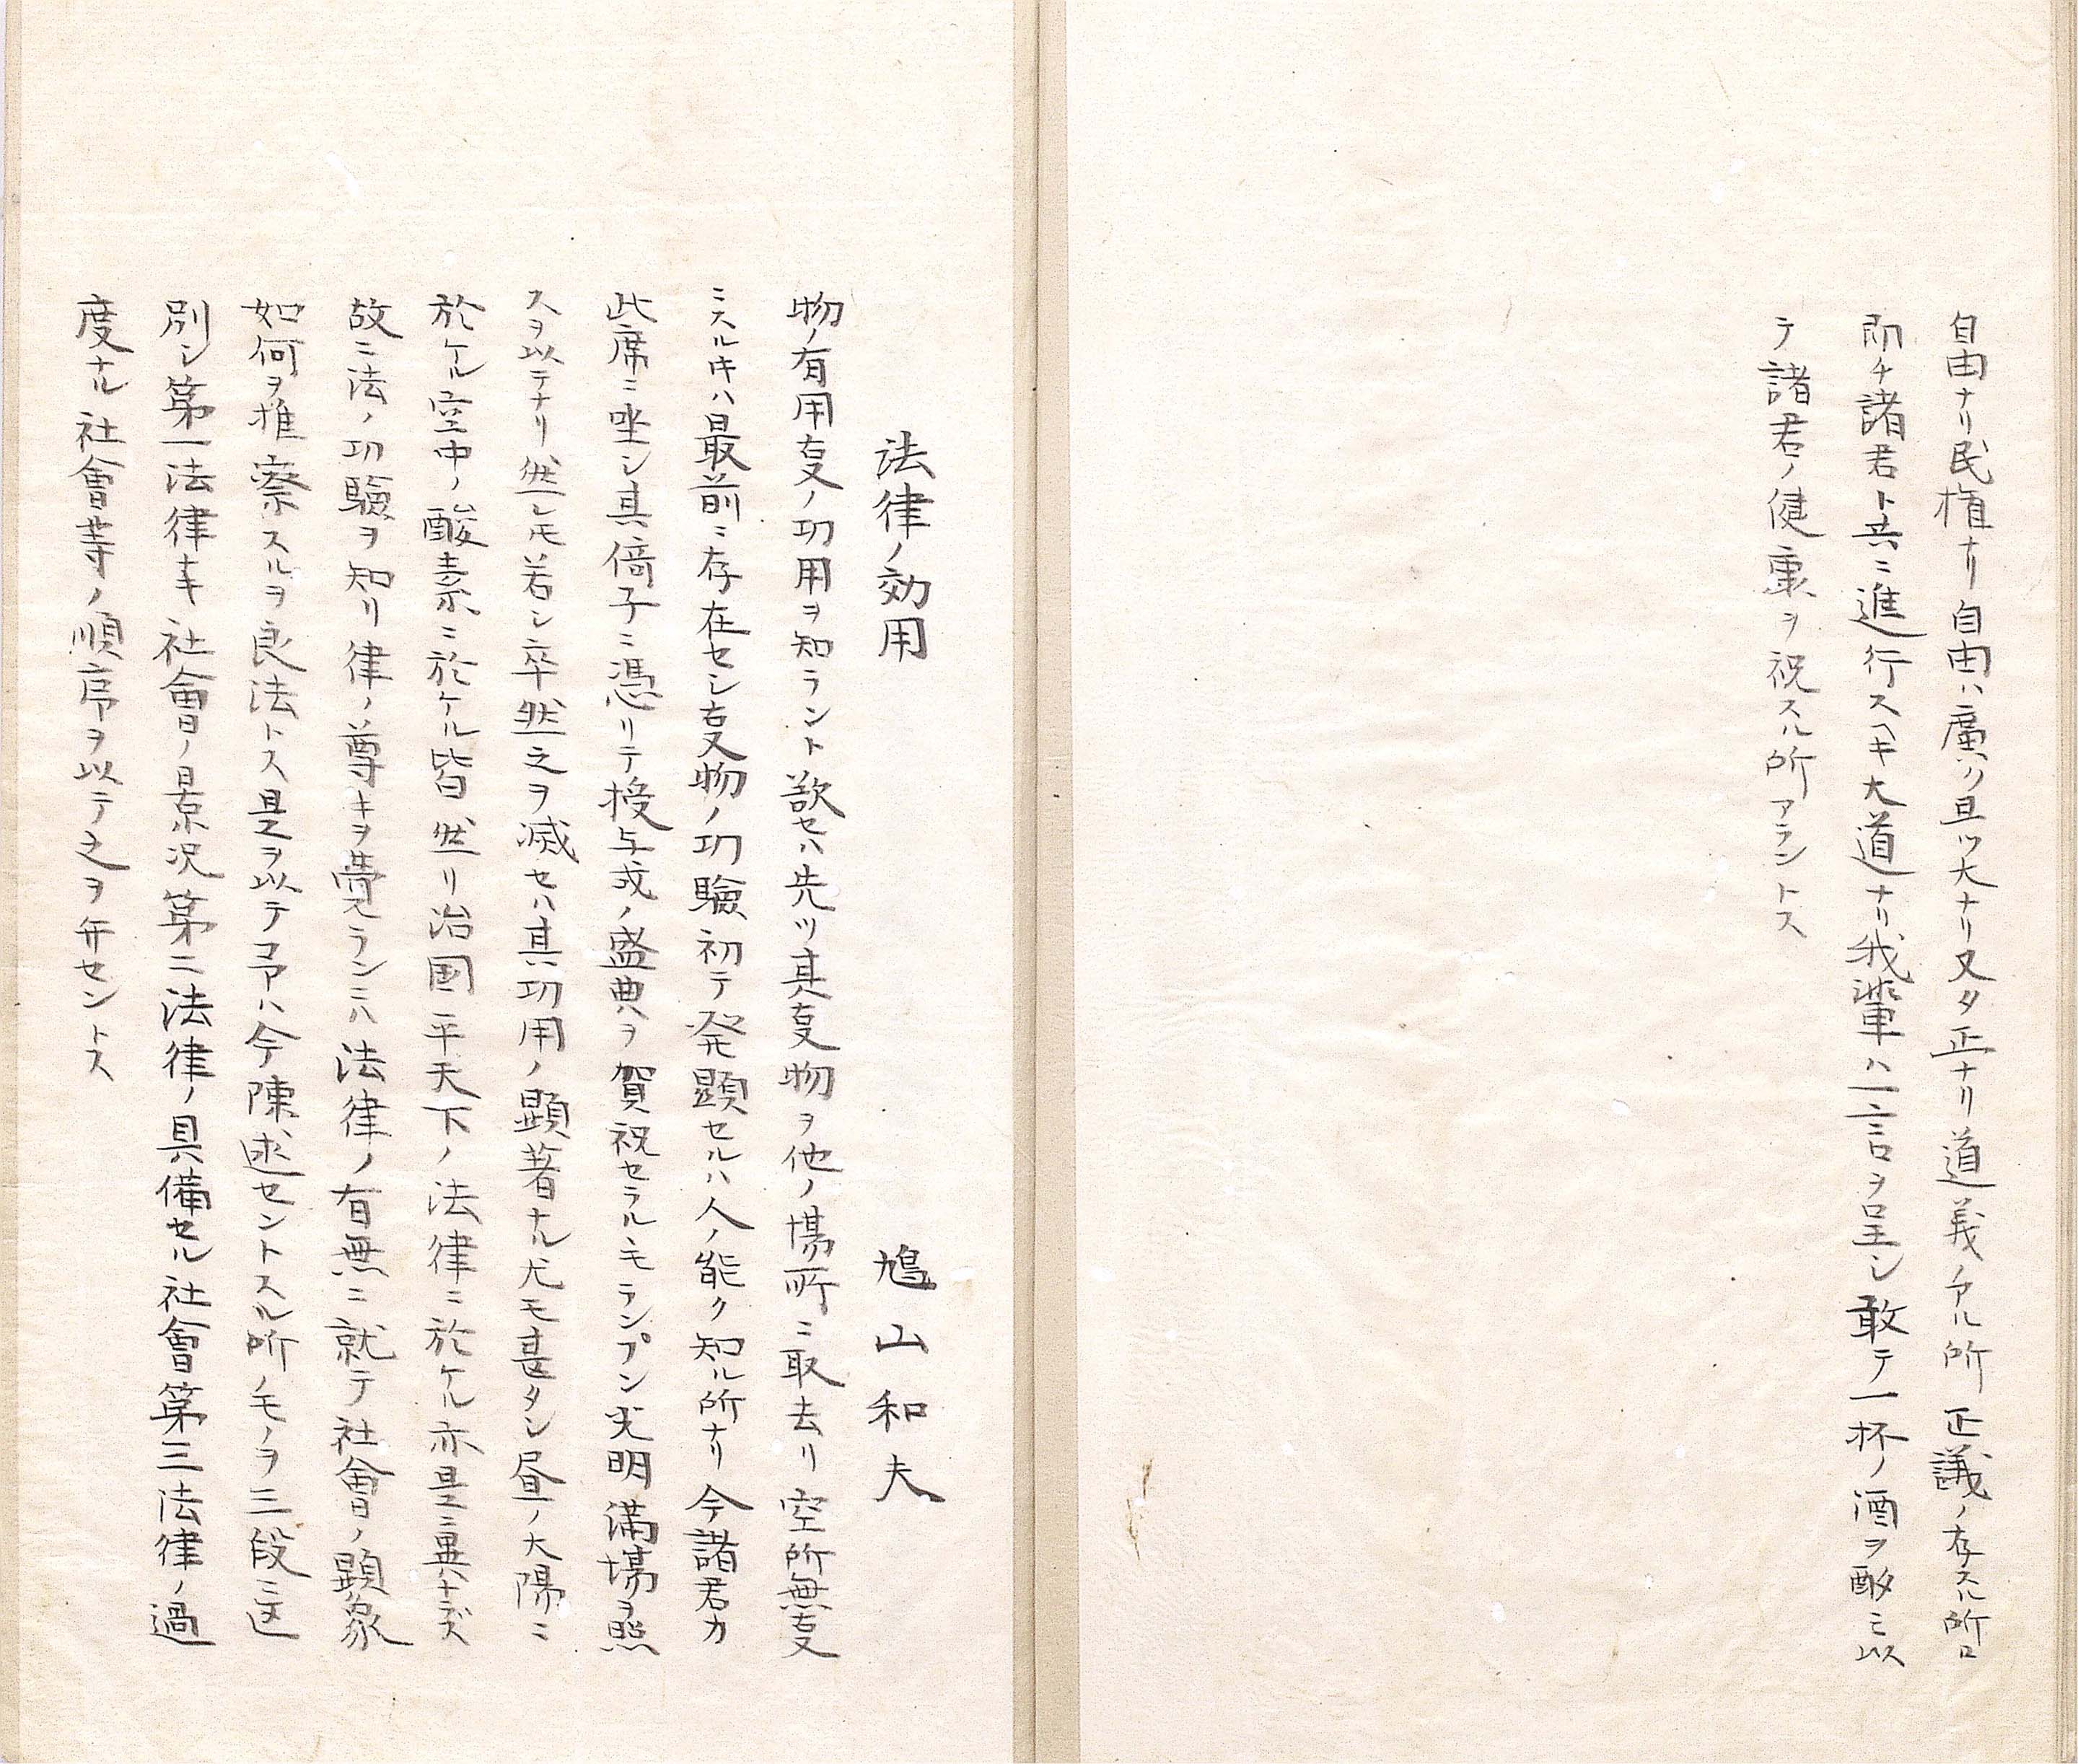 自由ナリ民権ナリ自由ハ廣ク且ツ大ナリ又タ正ナリ道義ノアル所正議ノ存スル所ロ
即チ諸君ト共ニ進行スヘキ大道ナリ我輩ハ一言ヲ呈シ敢テ一杯ノ酒ヲ酌ミ以
テ諸君ノ健康ヲ祝スル所アラントス
法律ノ効用 鳩山和夫
物ノ有用事ノ功用ヲ知ラント欲セハ先ツ其事物ヲ他ノ場所ニ取去リ空所無事
ニスルキハ最前ニ存在セシ事物ノ功驗初テ発顕セルハ人ノ能ク知ル所ナリ今諸君カ
此席ニ坐シ其倚子ニ憑リテ授与式ノ盛典ヲ賀祝セラルモランプン光明満場ヲ照
スヲ以テナリ然レ𪜈若シ卒然之ヲ滅セハ其功用ノ顕著ナル尤モ甚タシ昼ノ大陽ニ
於ケル空中ノ酸素ニ於ケル皆然リ治國平天下ノ法律ニ於ケル亦是ニ異ナラズ
故ニ法ノ功驗ヲ知リ律ノ尊キヲ覺ランニハ法律ノ有無ニ就テ社會ノ顕象
如何ヲ推察スルヲ良法トス是ヲ以テ予ハ今陳述セントスル所ノモノヲ三段ニ区
別シ第一法律ナキ社會ノ景况第二法律ノ具備セル社會第三法律ノ過
度ナル社會等ノ順序ヲ以テ之ヲ弁セントス